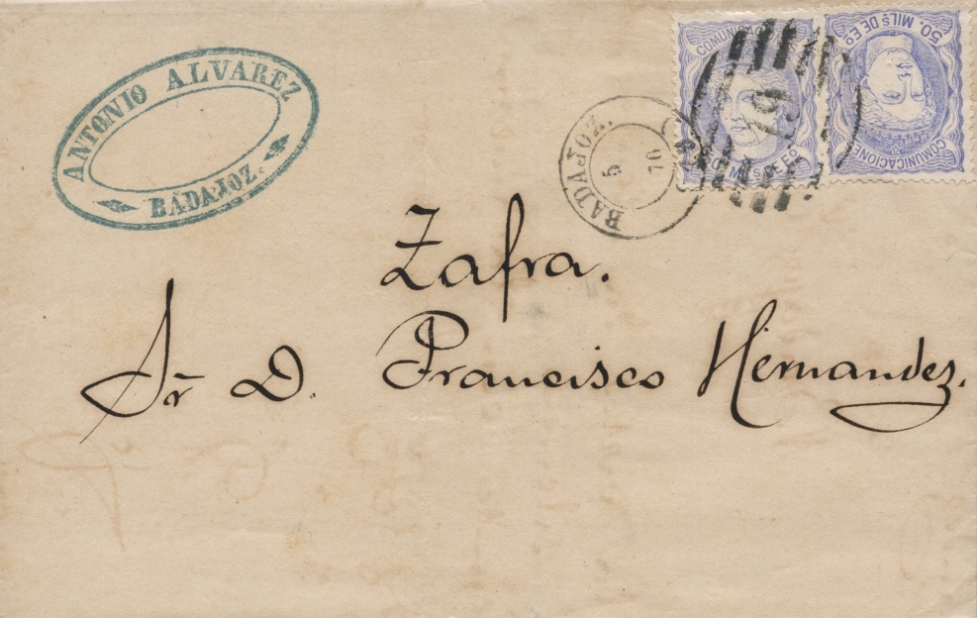 ANTONIO ALVAREZ
BADAJOZ.
BADAJOZ.
5
COMUNICACIONES
19
50. MILS DE EO
COMUNICACIONES
Zafra.
Sr D. Francisco Hernandez.